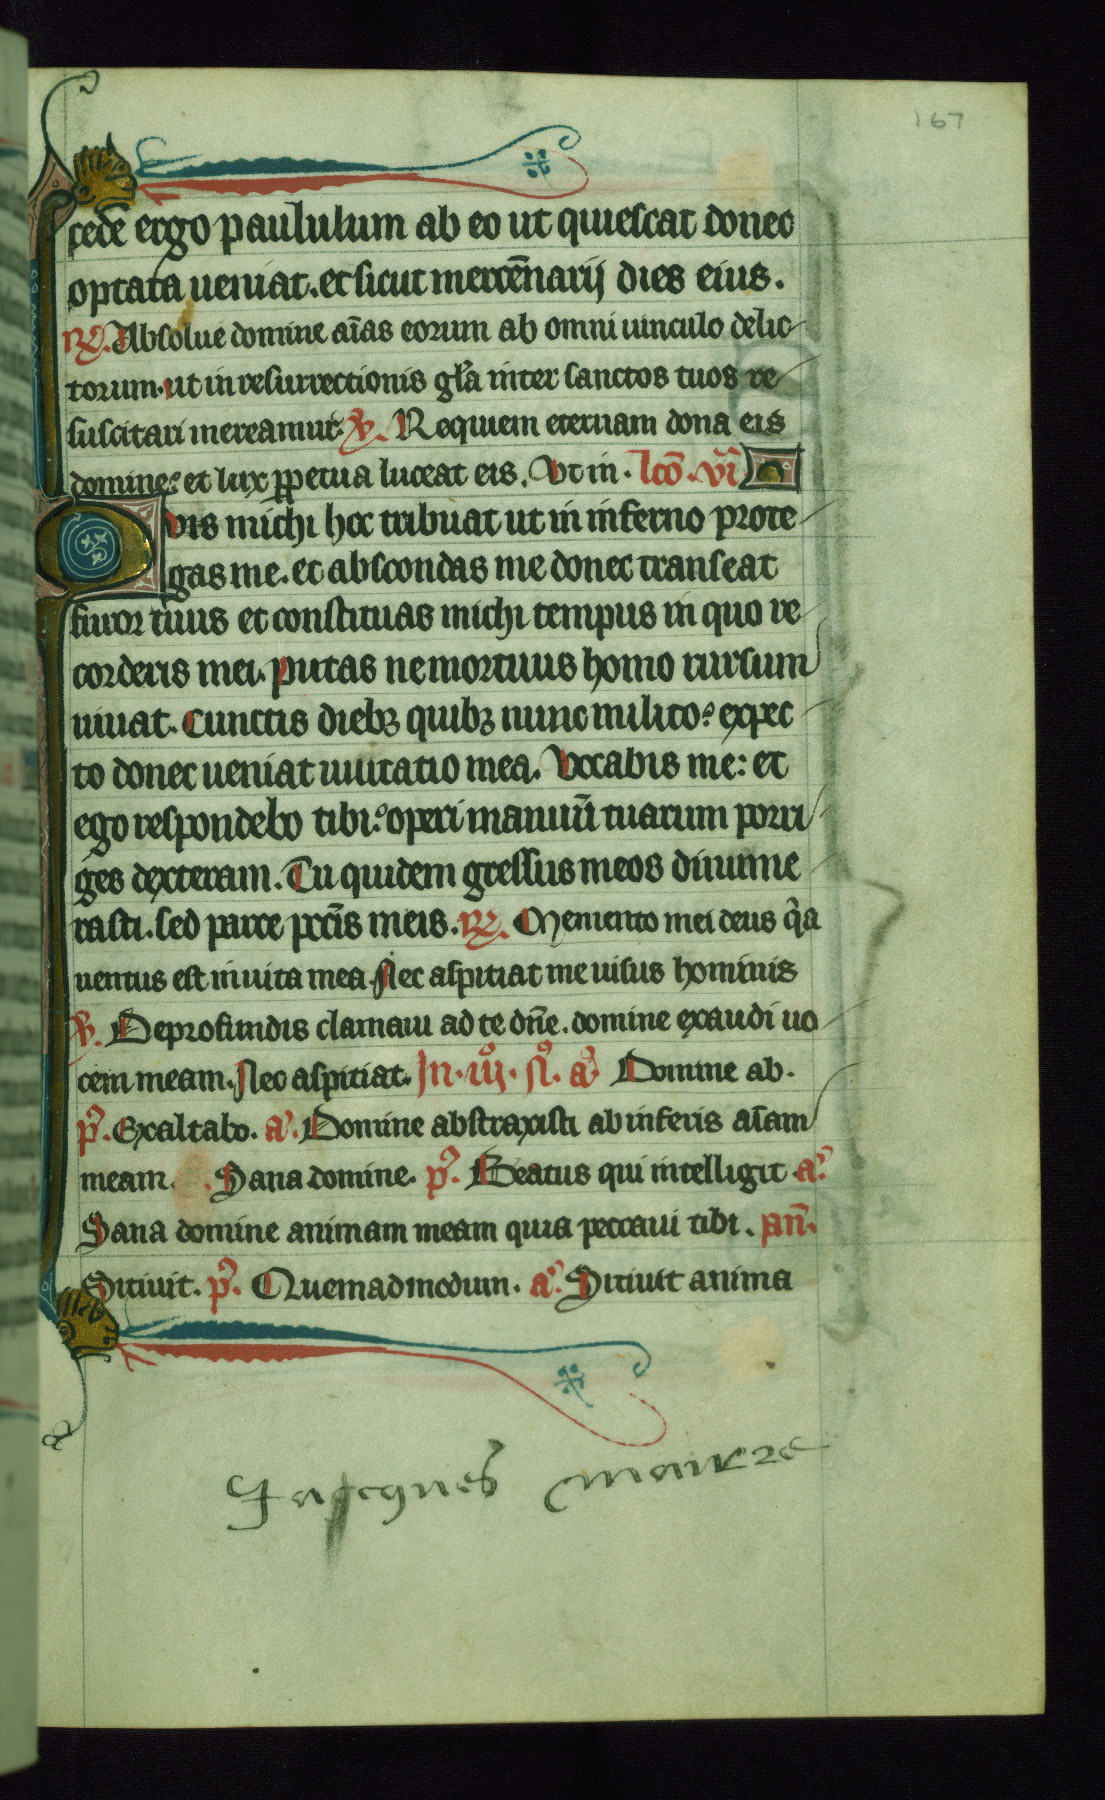 167
cede ergo paululum ab eo ut quiescat donec
optata ueniat. et sicut mercēnarij dies eius.
R̷. Absolue domine aīas eorum ab omni uinculo delic
torum. ut in resurrectionis gl̄a inter sanctos tuos re
suscitari mereamur. V̷. Requiem eternam dona eis
domine: et lux ꝑpetua luceat eis. Vt in. lcō. vi.
Quis michi hoc tribuat ut in inferno prote
gas me. et abscondas me donec transeat
furor tuus et constituas michi tempus in quo re
corderis mei. putas ne mortuus homo rursum
uiuat. Cunctis dieb; quib; nunc milito: expec
to donec ueniat inmutatio mea. Vocabis me: et
ego respondebo tibi: operi manuū tuarum porri
ges dexteram. Tu quidem gressus meos dinume
rasti. sed parce pcc̄is meis. R̷. Memento mei deus q̄a
uentus est in uita mea. Nec aspitiat me uisus hominis
V̷. De profundis clamaui ad te dn̄e. domine exaudi uo
cem meam. Nec aspitiat. In. iijͦ. nͦ. aͣ. Domine ab.
p̄. Exaltabo. aͣ. Domine abstraxisti ab inferis aīam
meam. Sana domine. p̄. Beatus qui intelligit aͣ.
Sana domine animam meam quia peccaui tibi. an̄.
Sitiuit. p̄. Quemadmodum. aͣ. Sitiuit anima